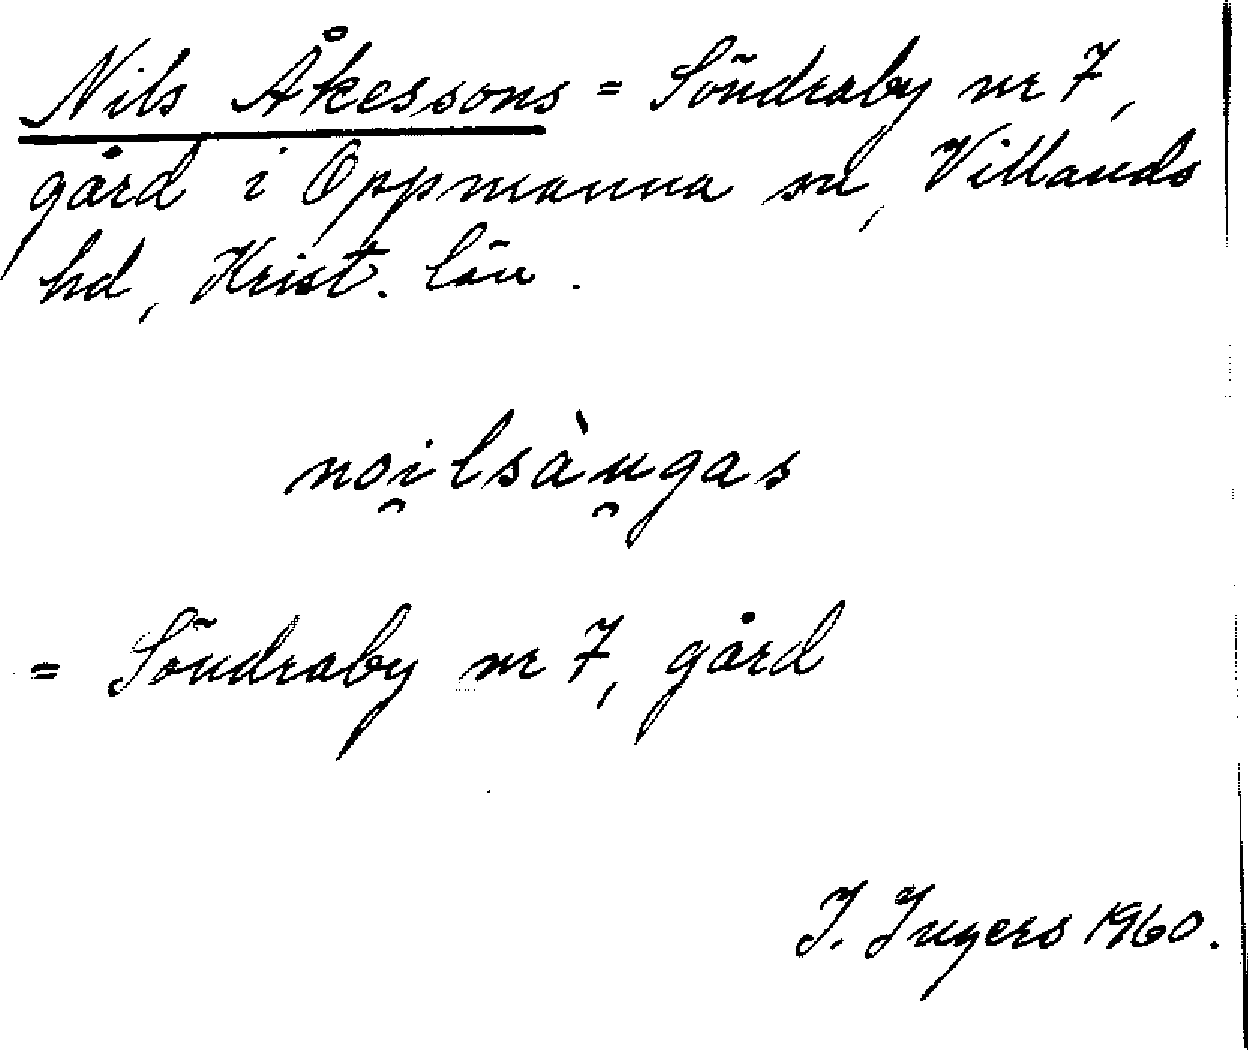 Nils Åkessons = Söndraby nr 7,
gård i Oppmanna sn, Villands
hd, Krist. län.
noi̯lsàu̯gas
= Söndraby nr 7, gård
I. Ingers 1960.